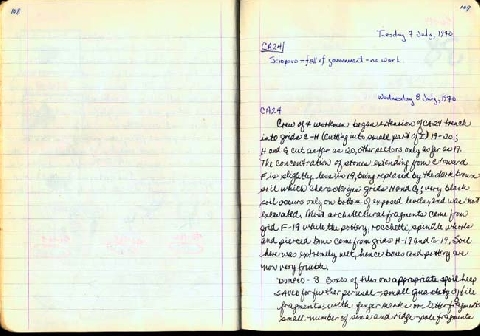 168
169
Tuesday 7 July, 1970
CA24
Sciopero - fall of government - no work
Wednesday 8 July, 1970
CA24
Crew of 4 workmen began extension of CA24 trench
into grids E-H (cutting into small part of I) 19-20;
H and G cut as far as 20, other sectors only as far as 19.
The concentration of stones extending from E toward
F is slightly less in 19, being replaced by the dark brown
soil which characterizes grids H and G; very black
soil occurs only on bottom of exposed levels, and was not
excavated. Most architectural fragments come from
grid F-19 while the pottery, rocchetti, spindle whorls
and pierced bone come from grids H-19 and G-19. Soil
here was extremely wet, hence bones and pottery are
now very friable.
DUMPED - 3 boxes of tiles on appropriate spoil heap
SAVED for further perusal - small quantity of tile
fragments with finger marks on
small number of pan and ridge-pole fragments